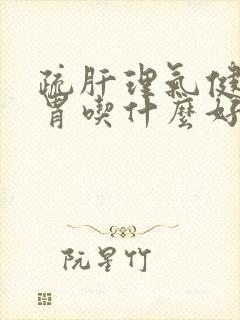 疏肝理氣健
胃喫什麼好
阮星竹